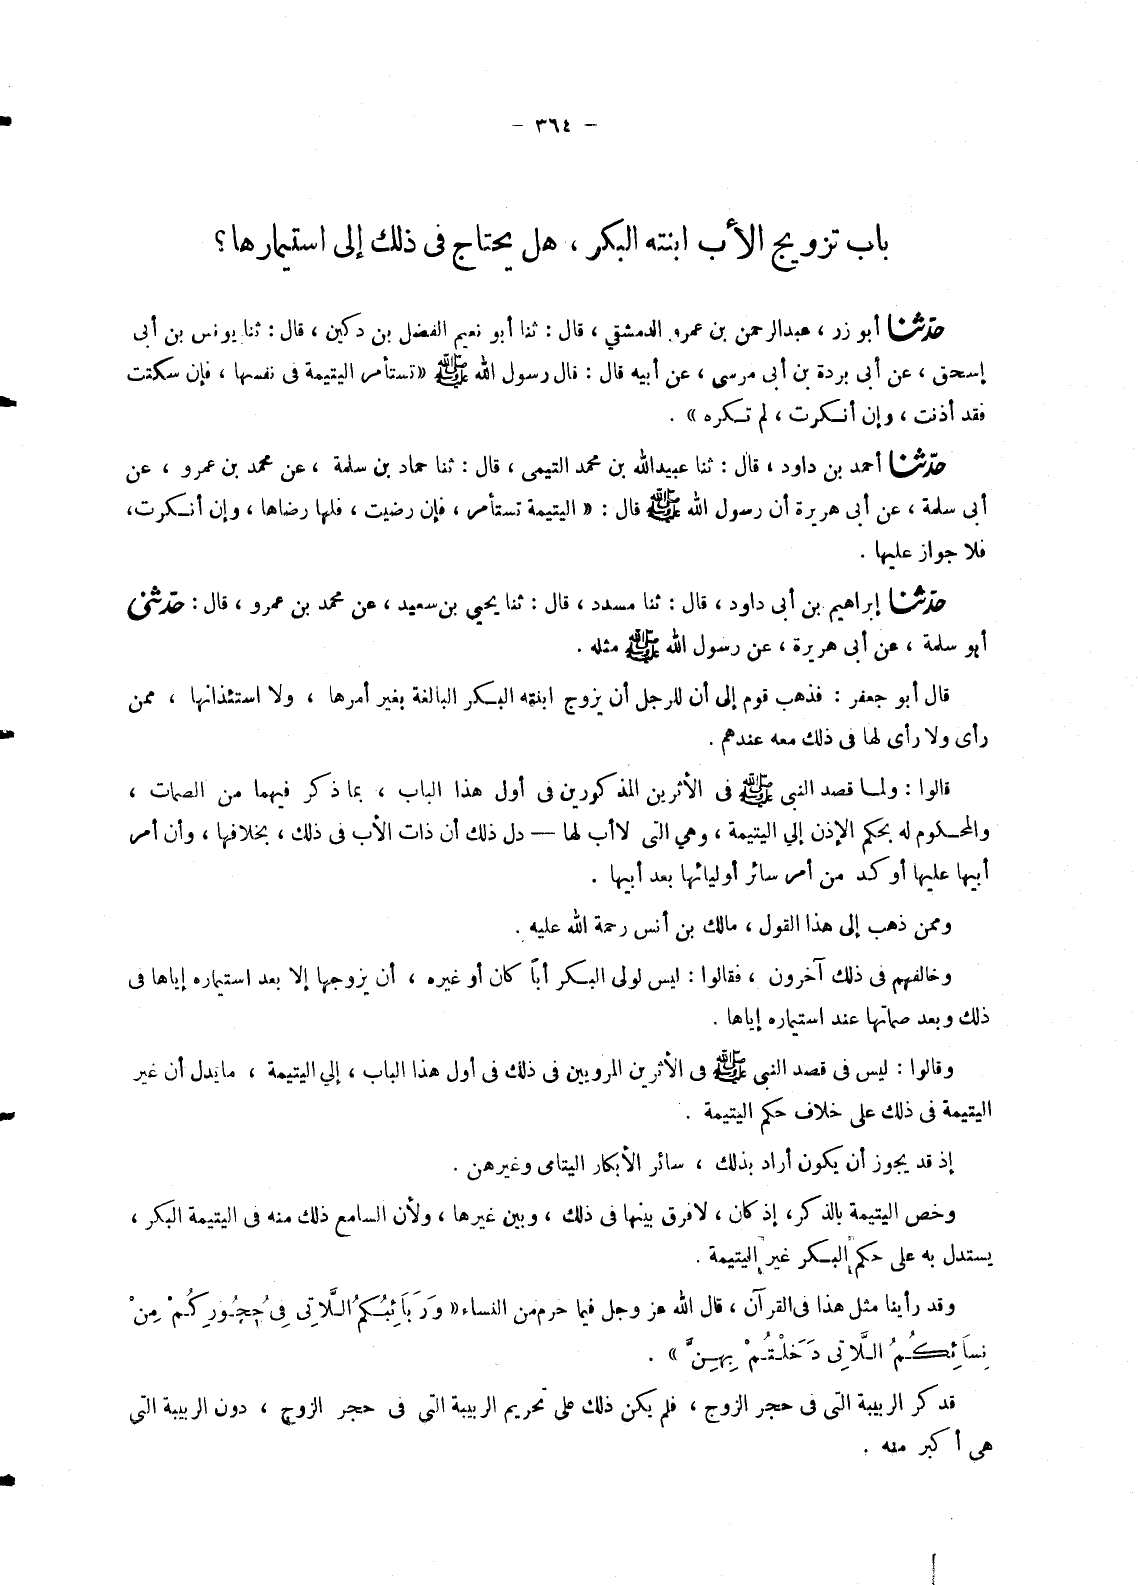 - ٣٦٤ -
باب تزويج الأب ابنته البكر ، هل يحتاج فى ذلك إلى استيمارها ؟
حدّثنا أبو زر ، عبدالرحمن بن عمرو الدمشقي ، قال : ثنا أبو نعيم الفضل بن دكين ، قال : ثنا يونس بن أبى
إسحق ، عن أبى بردة بن أبى مرسى ، عن أبيه قال : قال رسول الله ﷺ «تستأمر اليتيمة فى نفسها ، فإن سكتت
فقد أذنت ، وإن أنكرت ، لم تكره» .
حدّثنا أحمد بن داود ، قال : ثنا عبيدالله بن محمد التيمى ، قال : ثنا حماد بن سلمة ، عن محمد بن عمرو ، عن
أبى سلمة ، عن أبى هريرة أن رسول الله ﷺ قال : « اليتيمة تستأمر ، فإن رضيت ، فلها رضاها ، وإن أنكرت،
فلا جواز عليها .
حدّثنا إبراهيم بن أبى داود ، قال : ثنا مسدد ، قال : ثنا يحيي بن سعيد ، عن محمد بن عمرو ، قال : حدّثنى
أبو سلمة ، عن أبى هريرة ، عن رسول الله ﷺ مثله .
قال أبو جعفر : فذهب قوم إلى أن للرجل أن يزوج ابنته البكر البالغة بغير أمرها ، ولا استئذانها ، ممن
رأى ولا رأى لها فى ذلك معه عندهم .
قالوا : ولما قصد النبى ﷺ فى الأثرين المذكورين فى أول هذا الباب ، بما ذكر فيهما من الصمات ،
والمحكوم له بحكم الإذن إلي اليتيمة ، وهي التى لاأب لها — دل ذلك أن ذات الأب فى ذلك ، بخلافها ، وأن أمر
أبيها عليها أوكد من أمر سائر أوليائها بعد أبيها .
وممن ذهب إلى هذا القول ، مالك بن أنس رحمة الله عليه .
وخالفهم فى ذلك آخرون ، فقالوا : ليس لولى البكر أباً كان أو غيره ، أن يزوجها إلا بعد استيماره إياها فى
ذلك وبعد صماتها عند استيماره إياها .
وقالوا : ليس فى قصد النبى ﷺ فى الأثرين المرويين فى ذلك فى أول هذا الباب ، إلي اليتيمة ، مايدل أن غير
اليتيمة فى ذلك على خلاف حكم اليتيمة .
إذ قد يجوز أن يكون أراد بذلك ، سائر الأبكار اليتامى وغيرهن .
وخص اليتيمة بالذكر، إذ كان ، لافرق بينها فى ذلك ، وبين غيرها ، ولأن السامع ذلك منه فى اليتيمة البكر ،
يستدل به على حكم البكر غير اليتيمة .
وقد رأينا مثل هذا فى القرآن ، قال الله عز وجل فيما حرم من النساء « وَرَبَائِبُكُمُ اللَّاتِى فِى حُجُورِكُمْ مِنْ
نِسَائِكُمُ اللَّاتِى دَخَلْتُمْ بِهِنَّ » .
قد كر الربيبة التى فى حجر الزوج ، فلم يكن ذلك على تحريم الربيبة التى فى حجر الزوج ، دون الربيبة التى
هى أكبر منه .